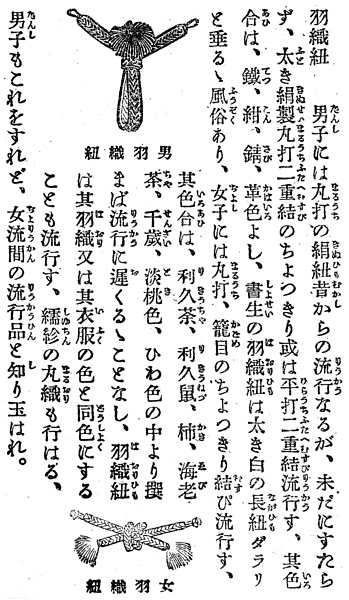 羽織紐　男子には丸打の絹紐昔からの流行なるが、未だにすたら
ず、太き絹製丸打二重結のちよつきり或は平打二重結流行す、其色
合は、鐵、紺、錆、革色よし、書生の羽織紐は太き白の長紐ダラリ
と垂るゝ風俗あり、女子には丸打、籠目のちよつきり結び流行す、
其色合は、利久茶、利久鼠、柿、海老
茶、千歳、淡桃色、ひわ色の中より撰
まば流行に遅くるゝことなし、羽織紐
は其羽織又は其衣服の色と同色にする
ことも流行す、繻紾の丸織も行はる、
男子もこれをすれど、女流間の流行品と知り玉はれ。
男羽織紐
女羽織紐